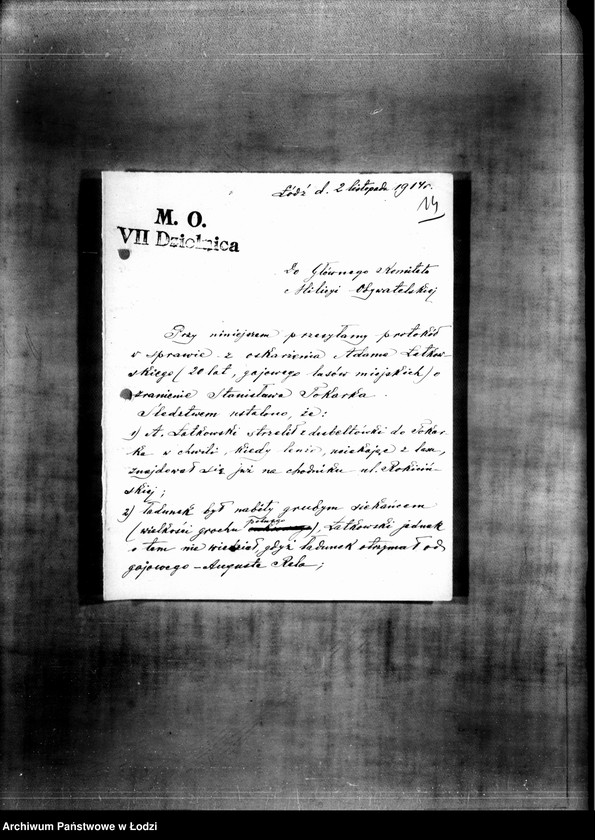 Łódź d. 2 listopada 1914 r.
14
M. O.
VII Dzielnica
Do Głównego Komitetu
Milicyi Obywatelskiej
Przy niniejszem przesyłamy protokół
w sprawie z oskarżenia Adama Latkow-
skiego (20 lat, gajowego lasów miejskich) o
zranienie Stanisława Tokarka.
Śledztwem ustalono, że:
1) A. Latkowski strzelił z dubeltówki do Tokar-
ka w chwili, kiedy tenże, uciekając z lasu,
znajdował się już na chodniku ul. Rokiciń-
skiej;
2) ładunek był nabity grubym siekańcem
(wielkości grochu polnego), Latkowski jednak
o tem nie wiedział, gdyż ładunek otrzymał od
gajowego – Augusta Rela;
Archiwum Państwowe w Łodzi